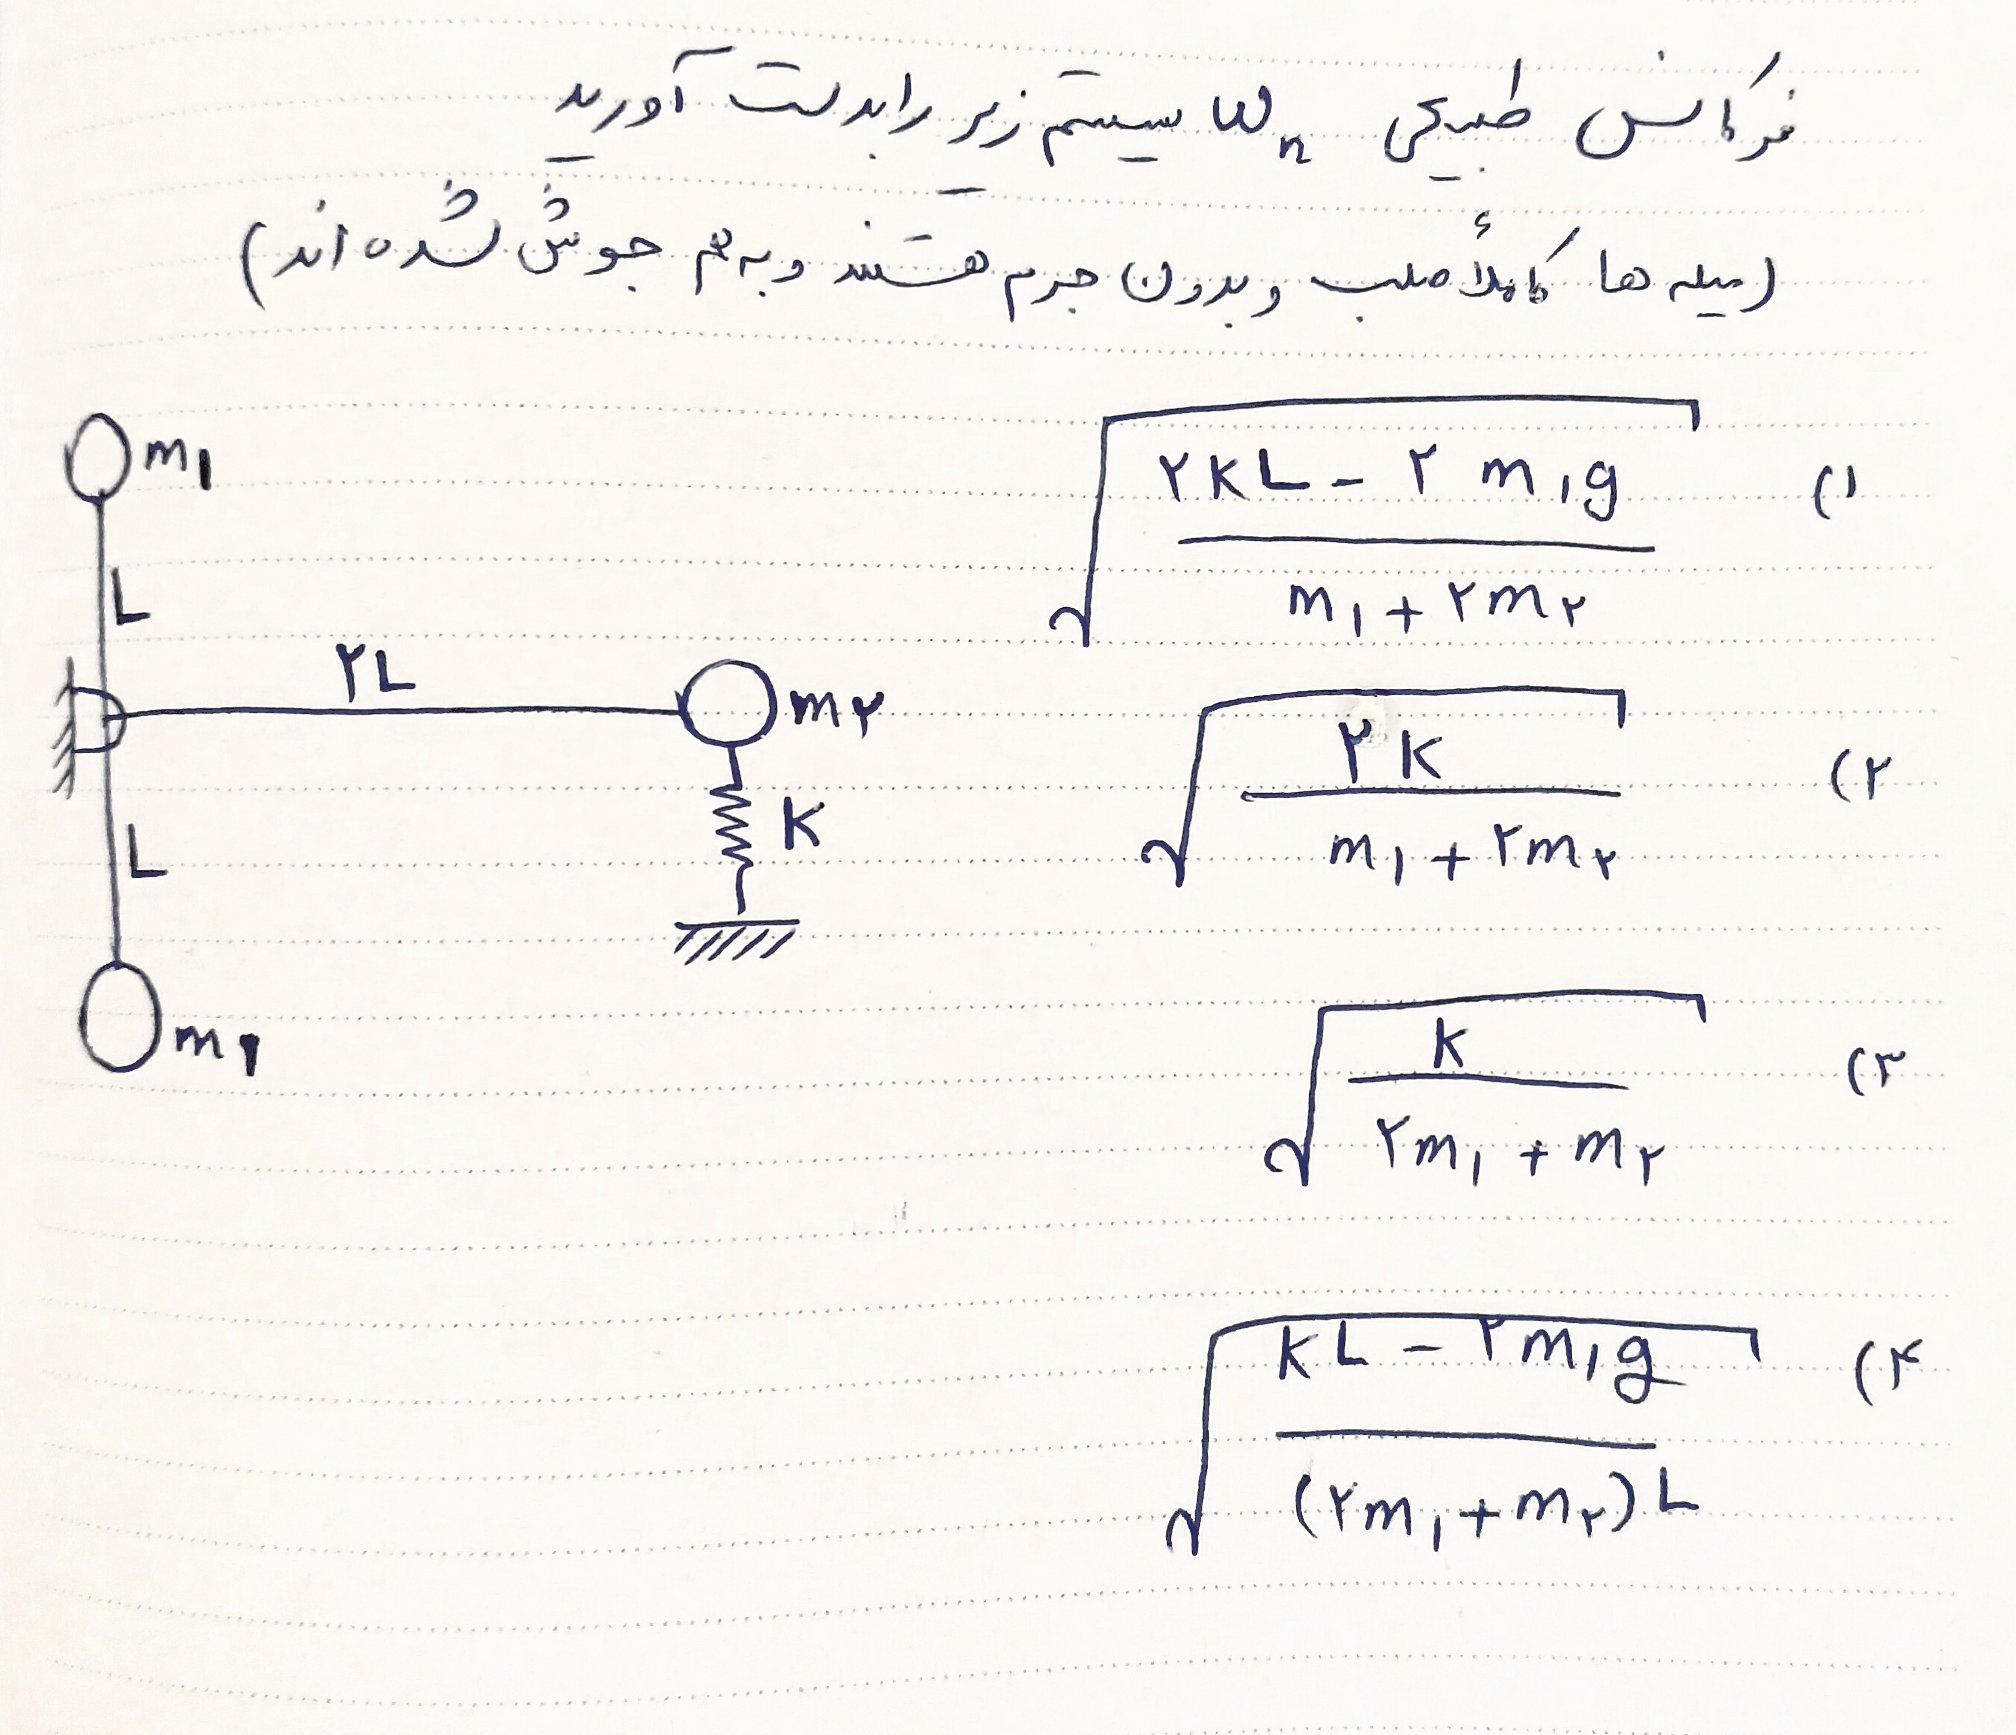 فرکانس طبیعی ωn سیستم زیر را بدست آورید
(میله ها کاملاً صلب و بدون جرم هستند و به هم جوش شده اند)
m۱
L
۲L
m۲
L
K
m۱
۱) √(۲KL - ۲m۱g / m۱ + ۲m۲)
۲) √(۲K / m۱ + ۲m۲)
۳) √(K / ۲m۱ + m۲)
۴) √(KL - ۲m۱g / (۲m۱ + m۲)L)